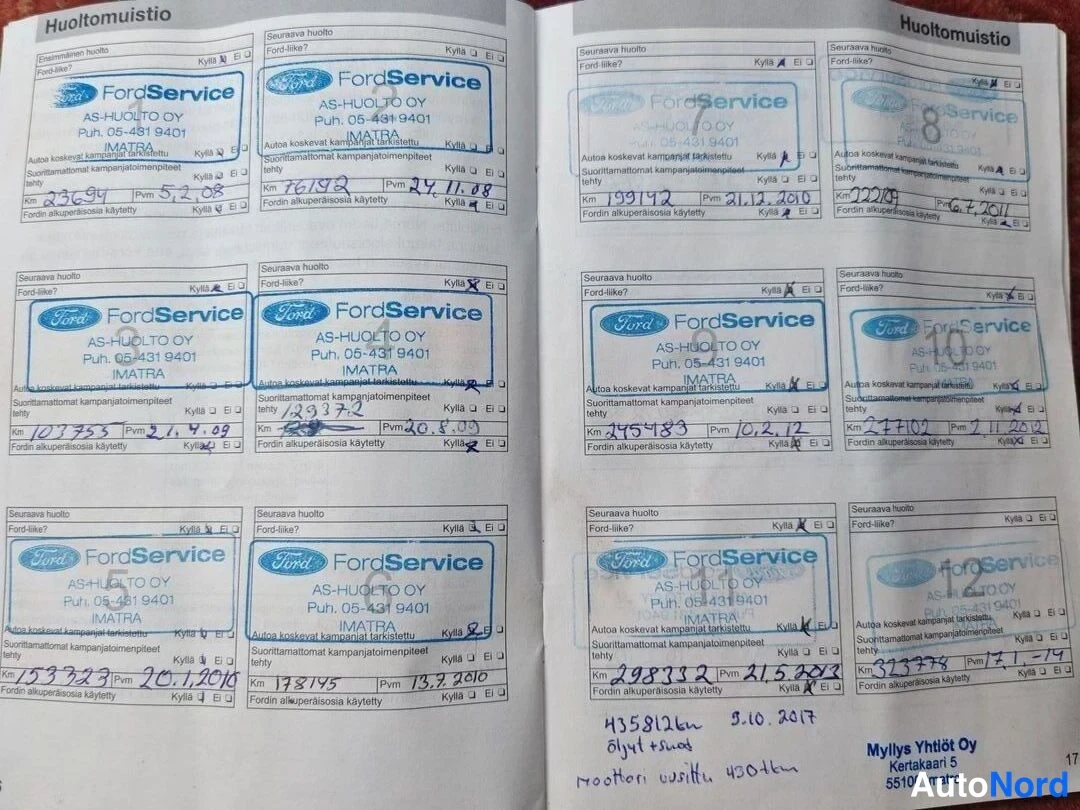 Huoltomuistio
Ensimmäinen huolto
Ford-liike? Kyllä Ei
1
Ford FordService
AS-HUOLTO OY
Puh. 05-431 9401
IMATRA
Autoa koskevat kampanjat tarkistettu Kyllä Ei
Suorittamattomat kampanjatoimenpiteet
tehty Kyllä Ei
Km 23694 Pvm 5,2,08
Fordin alkuperäisosia käytetty Kyllä Ei
Seuraava huolto
Ford-liike? Kyllä Ei
2
Ford FordService
AS-HUOLTO OY
Puh. 05-431 9401
IMATRA
Autoa koskevat kampanjat tarkistettu Kyllä Ei
Suorittamattomat kampanjatoimenpiteet
tehty Kyllä Ei
Km 76192 Pvm 24.11.08
Fordin alkuperäisosia käytetty Kyllä Ei
Seuraava huolto
Ford-liike? Kyllä Ei
3
Ford FordService
AS-HUOLTO OY
Puh. 05-431 9401
IMATRA
Autoa koskevat kampanjat tarkistettu Kyllä Ei
Suorittamattomat kampanjatoimenpiteet
tehty Kyllä Ei
Km 103755 Pvm 21.4.09
Fordin alkuperäisosia käytetty Kyllä Ei
Seuraava huolto
Ford-liike? Kyllä Ei
4
Ford FordService
AS-HUOLTO OY
Puh. 05-431 9401
IMATRA
Autoa koskevat kampanjat tarkistettu Kyllä Ei
Suorittamattomat kampanjatoimenpiteet
tehty 129372 Kyllä Ei
Km Pvm 20.8.09
Fordin alkuperäisosia käytetty Kyllä Ei
Seuraava huolto
Ford-liike? Kyllä Ei
5
Ford FordService
AS-HUOLTO OY
Puh. 05-431 9401
IMATRA
Autoa koskevat kampanjat tarkistettu Kyllä Ei
Suorittamattomat kampanjatoimenpiteet
tehty Kyllä Ei
Km 153323 Pvm 20.1.2010
Fordin alkuperäisosia käytetty Kyllä Ei
Seuraava huolto
Ford-liike? Kyllä Ei
6
Ford FordService
AS-HUOLTO OY
Puh. 05-431 9401
IMATRA
Autoa koskevat kampanjat tarkistettu Kyllä Ei
Suorittamattomat kampanjatoimenpiteet
tehty Kyllä Ei
Km 178145 Pvm 13.7.2010
Fordin alkuperäisosia käytetty Kyllä Ei
Huoltomuistio
Seuraava huolto
Ford-liike? Kyllä Ei
7
Ford FordService
AS-HUOLTO OY
Puh. 05-431 9401
IMATRA
Autoa koskevat kampanjat tarkistettu Kyllä Ei
Suorittamattomat kampanjatoimenpiteet
tehty Kyllä Ei
Km 199142 Pvm 21.12.2010
Fordin alkuperäisosia käytetty Kyllä Ei
Seuraava huolto
Ford-liike? Kyllä Ei
8
Ford FordService
AS-HUOLTO OY
Puh. 05-431 9401
Autoa koskevat kampanjat tarkistettu Kyllä Ei
Suorittamattomat kampanjatoimenpiteet
tehty Kyllä Ei
Km 222109 Pvm 6.7.2011
Fordin alkuperäisosia käytetty Kyllä Ei
Seuraava huolto
Ford-liike? Kyllä Ei
9
Ford FordService
AS-HUOLTO OY
Puh. 05-431 9401
IMATRA
Autoa koskevat kampanjat tarkistettu Kyllä Ei
Suorittamattomat kampanjatoimenpiteet
tehty Kyllä Ei
Km 245483 Pvm 10.2.12
Fordin alkuperäisosia käytetty Kyllä Ei
Seuraava huolto
Ford-liike? Kyllä Ei
10
Ford FordService
AS-HUOLTO OY
Puh. 05-431 9401
IMATRA
Autoa koskevat kampanjat tarkistettu Kyllä Ei
Suorittamattomat kampanjatoimenpiteet
tehty Kyllä Ei
Km 277102 Pvm 2.11.2012
Fordin alkuperäisosia käytetty Kyllä Ei
Seuraava huolto
Ford-liike? Kyllä Ei
11
Ford FordService
AS-HUOLTO OY
Puh. 05-431 9401
IMATRA
Autoa koskevat kampanjat tarkistettu Kyllä Ei
Suorittamattomat kampanjatoimenpiteet
tehty Kyllä Ei
Km 298332 Pvm 21.5.2013
Fordin alkuperäisosia käytetty Kyllä Ei
Seuraava huolto
Ford-liike? Kyllä Ei
12
Ford FordService
AS-HUOLTO OY
Puh. 05-431 9401
IMATRA
Autoa koskevat kampanjat tarkistettu Kyllä Ei
Suorittamattomat kampanjatoimenpiteet
tehty Kyllä Ei
Km 323778 Pvm 17.1.-14
Fordin alkuperäisosia käytetty Kyllä Ei
435812km 9.10.2017
öljyt + suod
moottori uusittu 430tkm
Myllys Yhtiöt Oy
Kertakaari 5
17
AutoNord